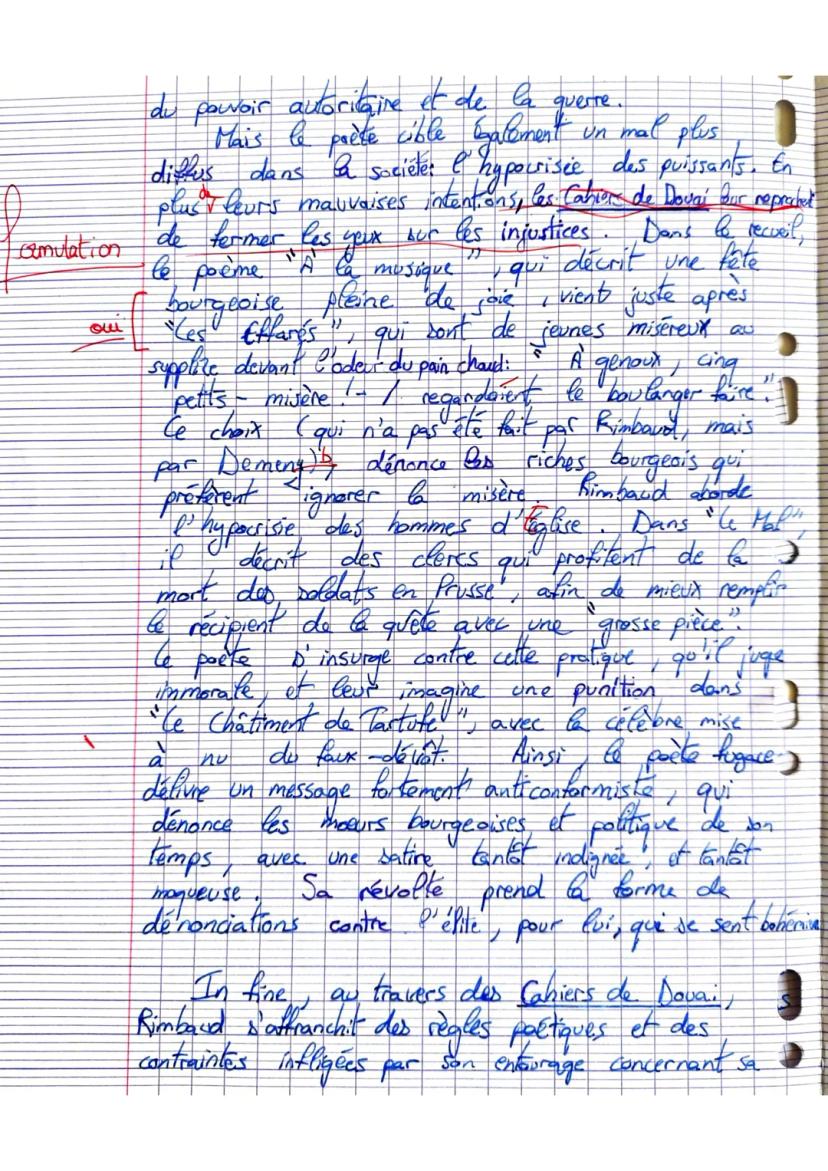 du pouvoir autoritaire et de la guerre.
Mais le poète cible également un mal plus
diffus dans la société: l'hypocrisie des puissants. En
plus de leurs mauvaises intentions, les Cahiers de Douai leur reprochent
de fermer les yeux sur les injustices. Dans le recueil,
formulation
le poème "À la musique", qui décrit une fête
bourgeoise pleine de joie, vient juste après
oui
"Les Effarés", qui sont de jeunes miséreux au
supplice devant l'odeur du pain chaud: "À genoux, cinq
petits - misère! - / regardaient le boulanger faire".
Ce choix (qui n'a pas été fait par Rimbaud, mais
par Demeny), dénonce les riches bourgeois qui
préfèrent ignorer la misère. Rimbaud aborde
l'hypocrisie des hommes d'Église. Dans "Le Mal",
il décrit des clercs qui profitent de la
mort des soldats en Prusse, afin de mieux remplir
le récipient de la quête avec une "grosse pièce".
Le poète s'insurge contre cette pratique, qu'il juge
immorale, et leur imagine une punition dans
"Le Châtiment de Tartufe", avec la célèbre mise
à nu du faux-dévôt. Ainsi, le poète fugace
délivre un message fortement anticonformiste, qui
dénonce les mœurs bourgeoises et politique de son
temps, avec une satire tantôt indignée, et tantôt
moqueuse. Sa révolte prend la forme de
dénonciations contre l'élite, pour lui, qui se sent bohémien
In fine, au travers des Cahiers de Douai,
Rimbaud s'affranchit des règles poétiques et des
contraintes infligées par son entourage concernant sa